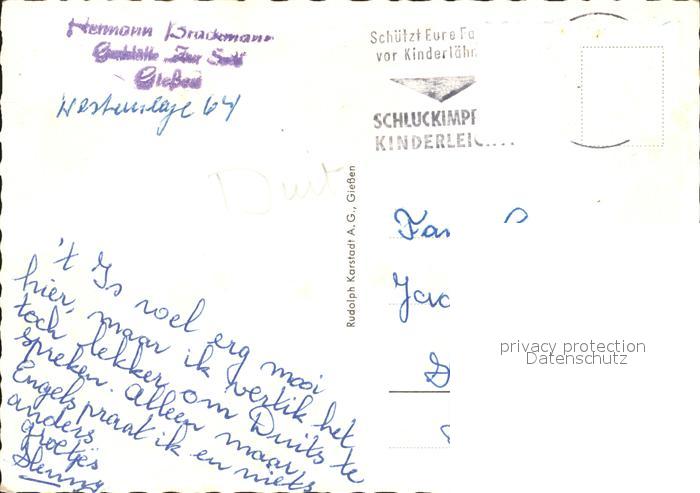 Hermann Brackmann
Gaststätte Zur
Gießen
Westanlage 64
Schützt Eure Fa
vor Kinderlähm
SCHLUCKIMPF
KINDERLEIC....
Duits
Rudolph Karstadt A. G., Gießen
't Is wel erg mooi
hier, maar ik vertik het
toch lekker om Duits te
spreken. Alleen maar
Engels praat ik en niets
anders
groetjes
Fa
D
privacy protection
Datenschutz